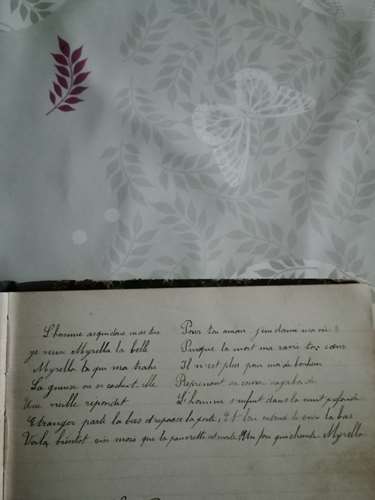 L'homme
je veux Myrella la belle
Myrella la qui ma trahi
La gueuse ou se cachent elle
Une vieille repondit
Etranger parle la bas et repousse la porte,
Voila bientot six mois que la pauvrette est morte
Pour ton amour j'ai damné ma vie
Puisque la mort ma ravie ton cœur
Il n'est plus pour moi de bonheur
Reprenant sa course vagabonde
L'homme s'enfuit dans la nuit profonde
Et l'on entend la bas
Un fou qui chante Myrella